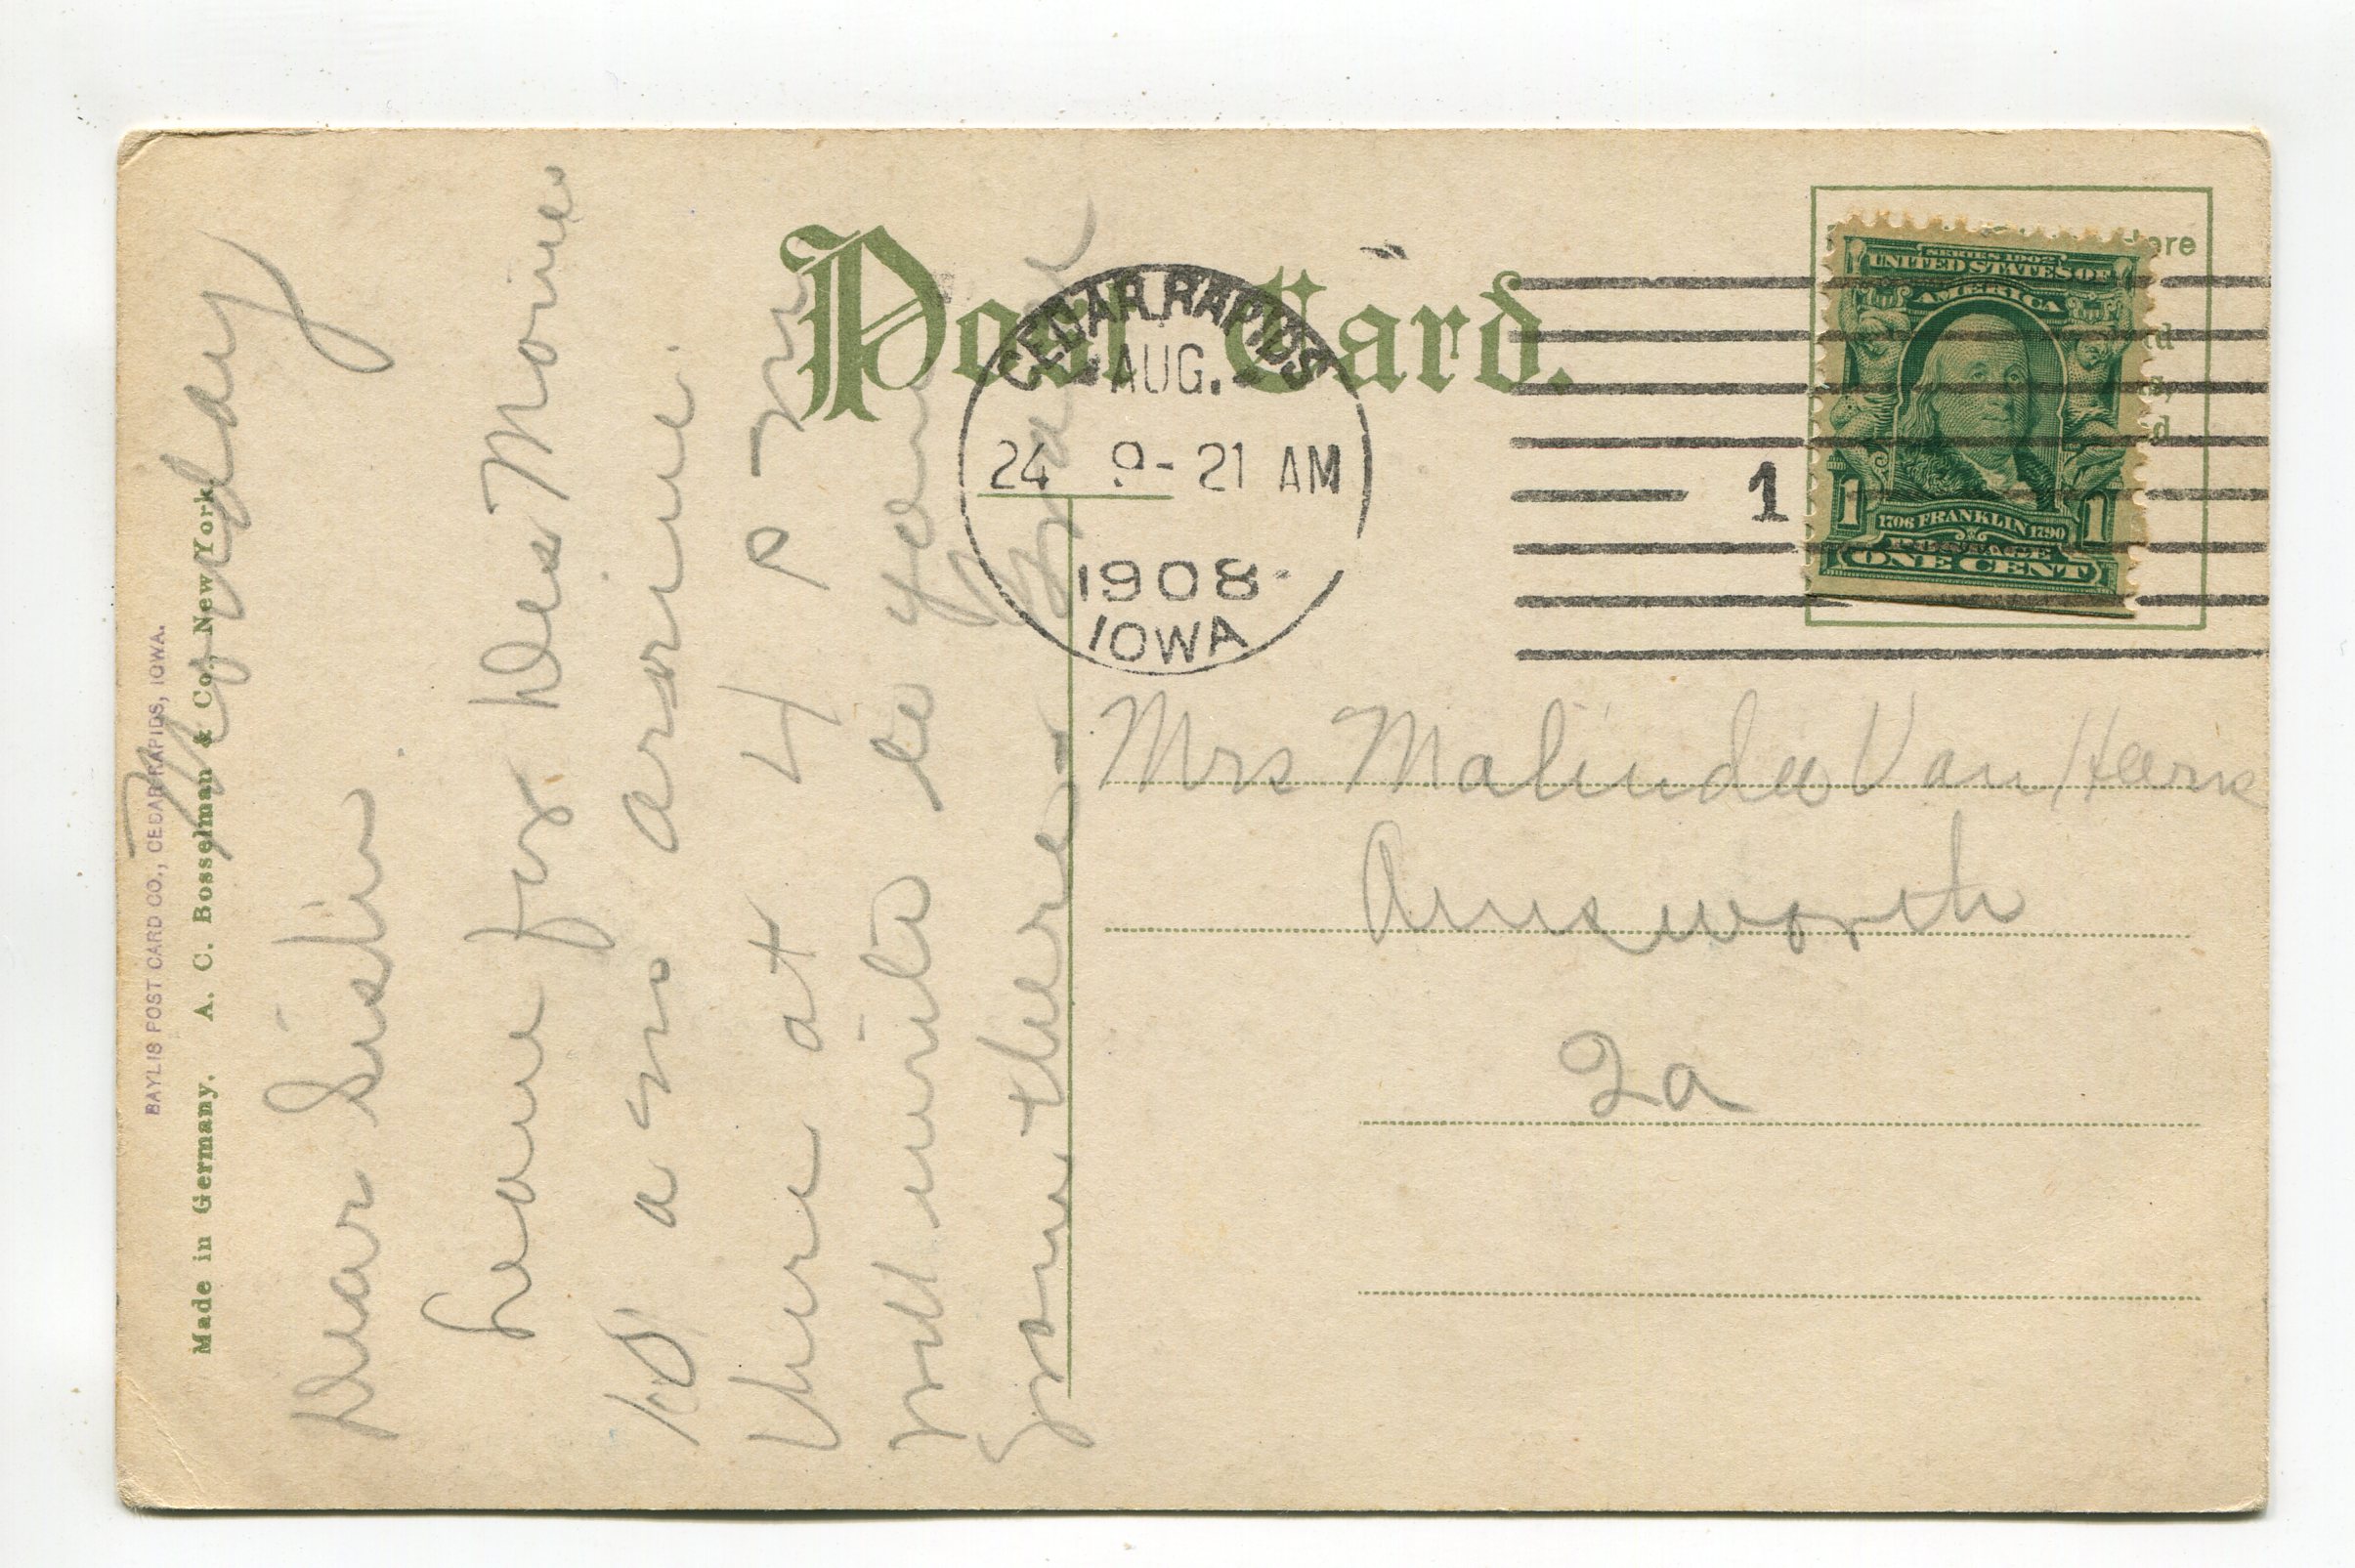 Post Card.
CEDAR RAPIDS
AUG.
24 9-21 AM
1908
IOWA
1
ere
d
d
SERIES 1902
UNITED STATES OF
AMERICA
1 1
1706 FRANKLIN 1790
POSTAGE
ONE CENT
BAYLIS POST CARD CO., CEDAR RAPIDS, IOWA.
Made in Germany. A. C. Bosselman & Co., New York
Monday
Dear Sister
Leave for Des Moines
10 a m arrive
there at 4 P M
will write to you
from there -
Mrs Malinda Van
Ainsworth
Ia